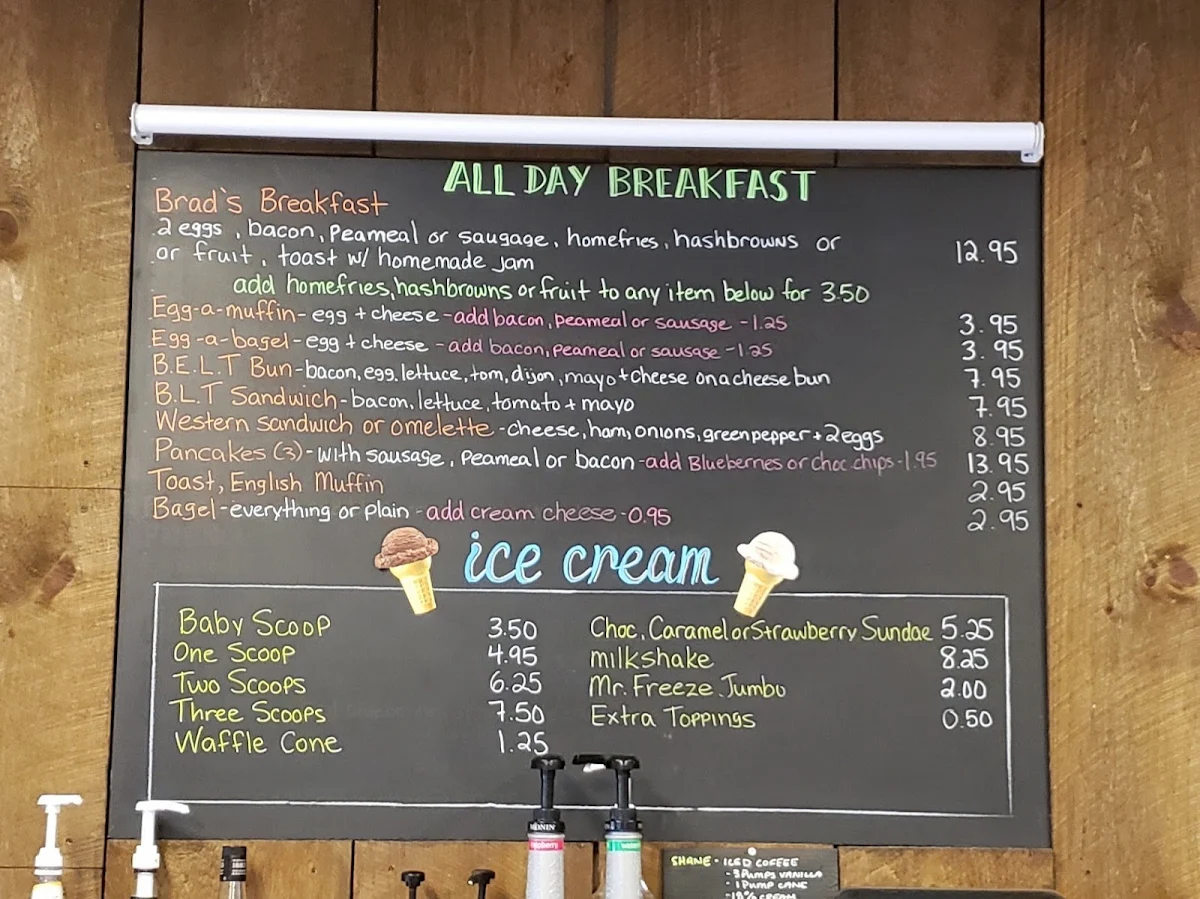 ALL DAY BREAKFAST
Brad's Breakfast
2 eggs, bacon, peameal or saugage, homefries, hashbrowns or
or fruit, toast w/ homemade jam 12.95
add homefries, hashbrowns or fruit to any item below for 3.50
Egg-a-muffin - egg + cheese - add bacon, peameal or sausage - 1.25 3.95
Egg-a-bagel - egg + cheese - add bacon, peameal or sausage - 1.25 3.95
B.E.L.T Bun - bacon, egg, lettuce, tom, dijon, mayo + cheese on a cheese bun 7.95
B.L.T Sandwich - bacon, lettuce, tomato + mayo 7.95
Western sandwich or omelette - cheese, ham, onions, green pepper + 2 eggs 8.95
Pancakes (3) - with sausage, peameal or bacon - add Blueberries or choc. chips - 1.95 13.95
Toast, English Muffin 2.95
Bagel - everything or plain - add cream cheese - 0.95 2.95
ice cream
Baby Scoop 3.50
One Scoop 4.95
Two Scoops 6.25
Three Scoops 7.50
Waffle Cone 1.25
Choc, Caramel or Strawberry Sundae 5.25
milkshake 8.25
Mr. Freeze Jumbo 2.00
Extra Toppings 0.50
MONIN
SHANE - ICED COFFEE
- 3 PUMPS VANILLA
- 1 PUMP CANE
- 18% CREAM